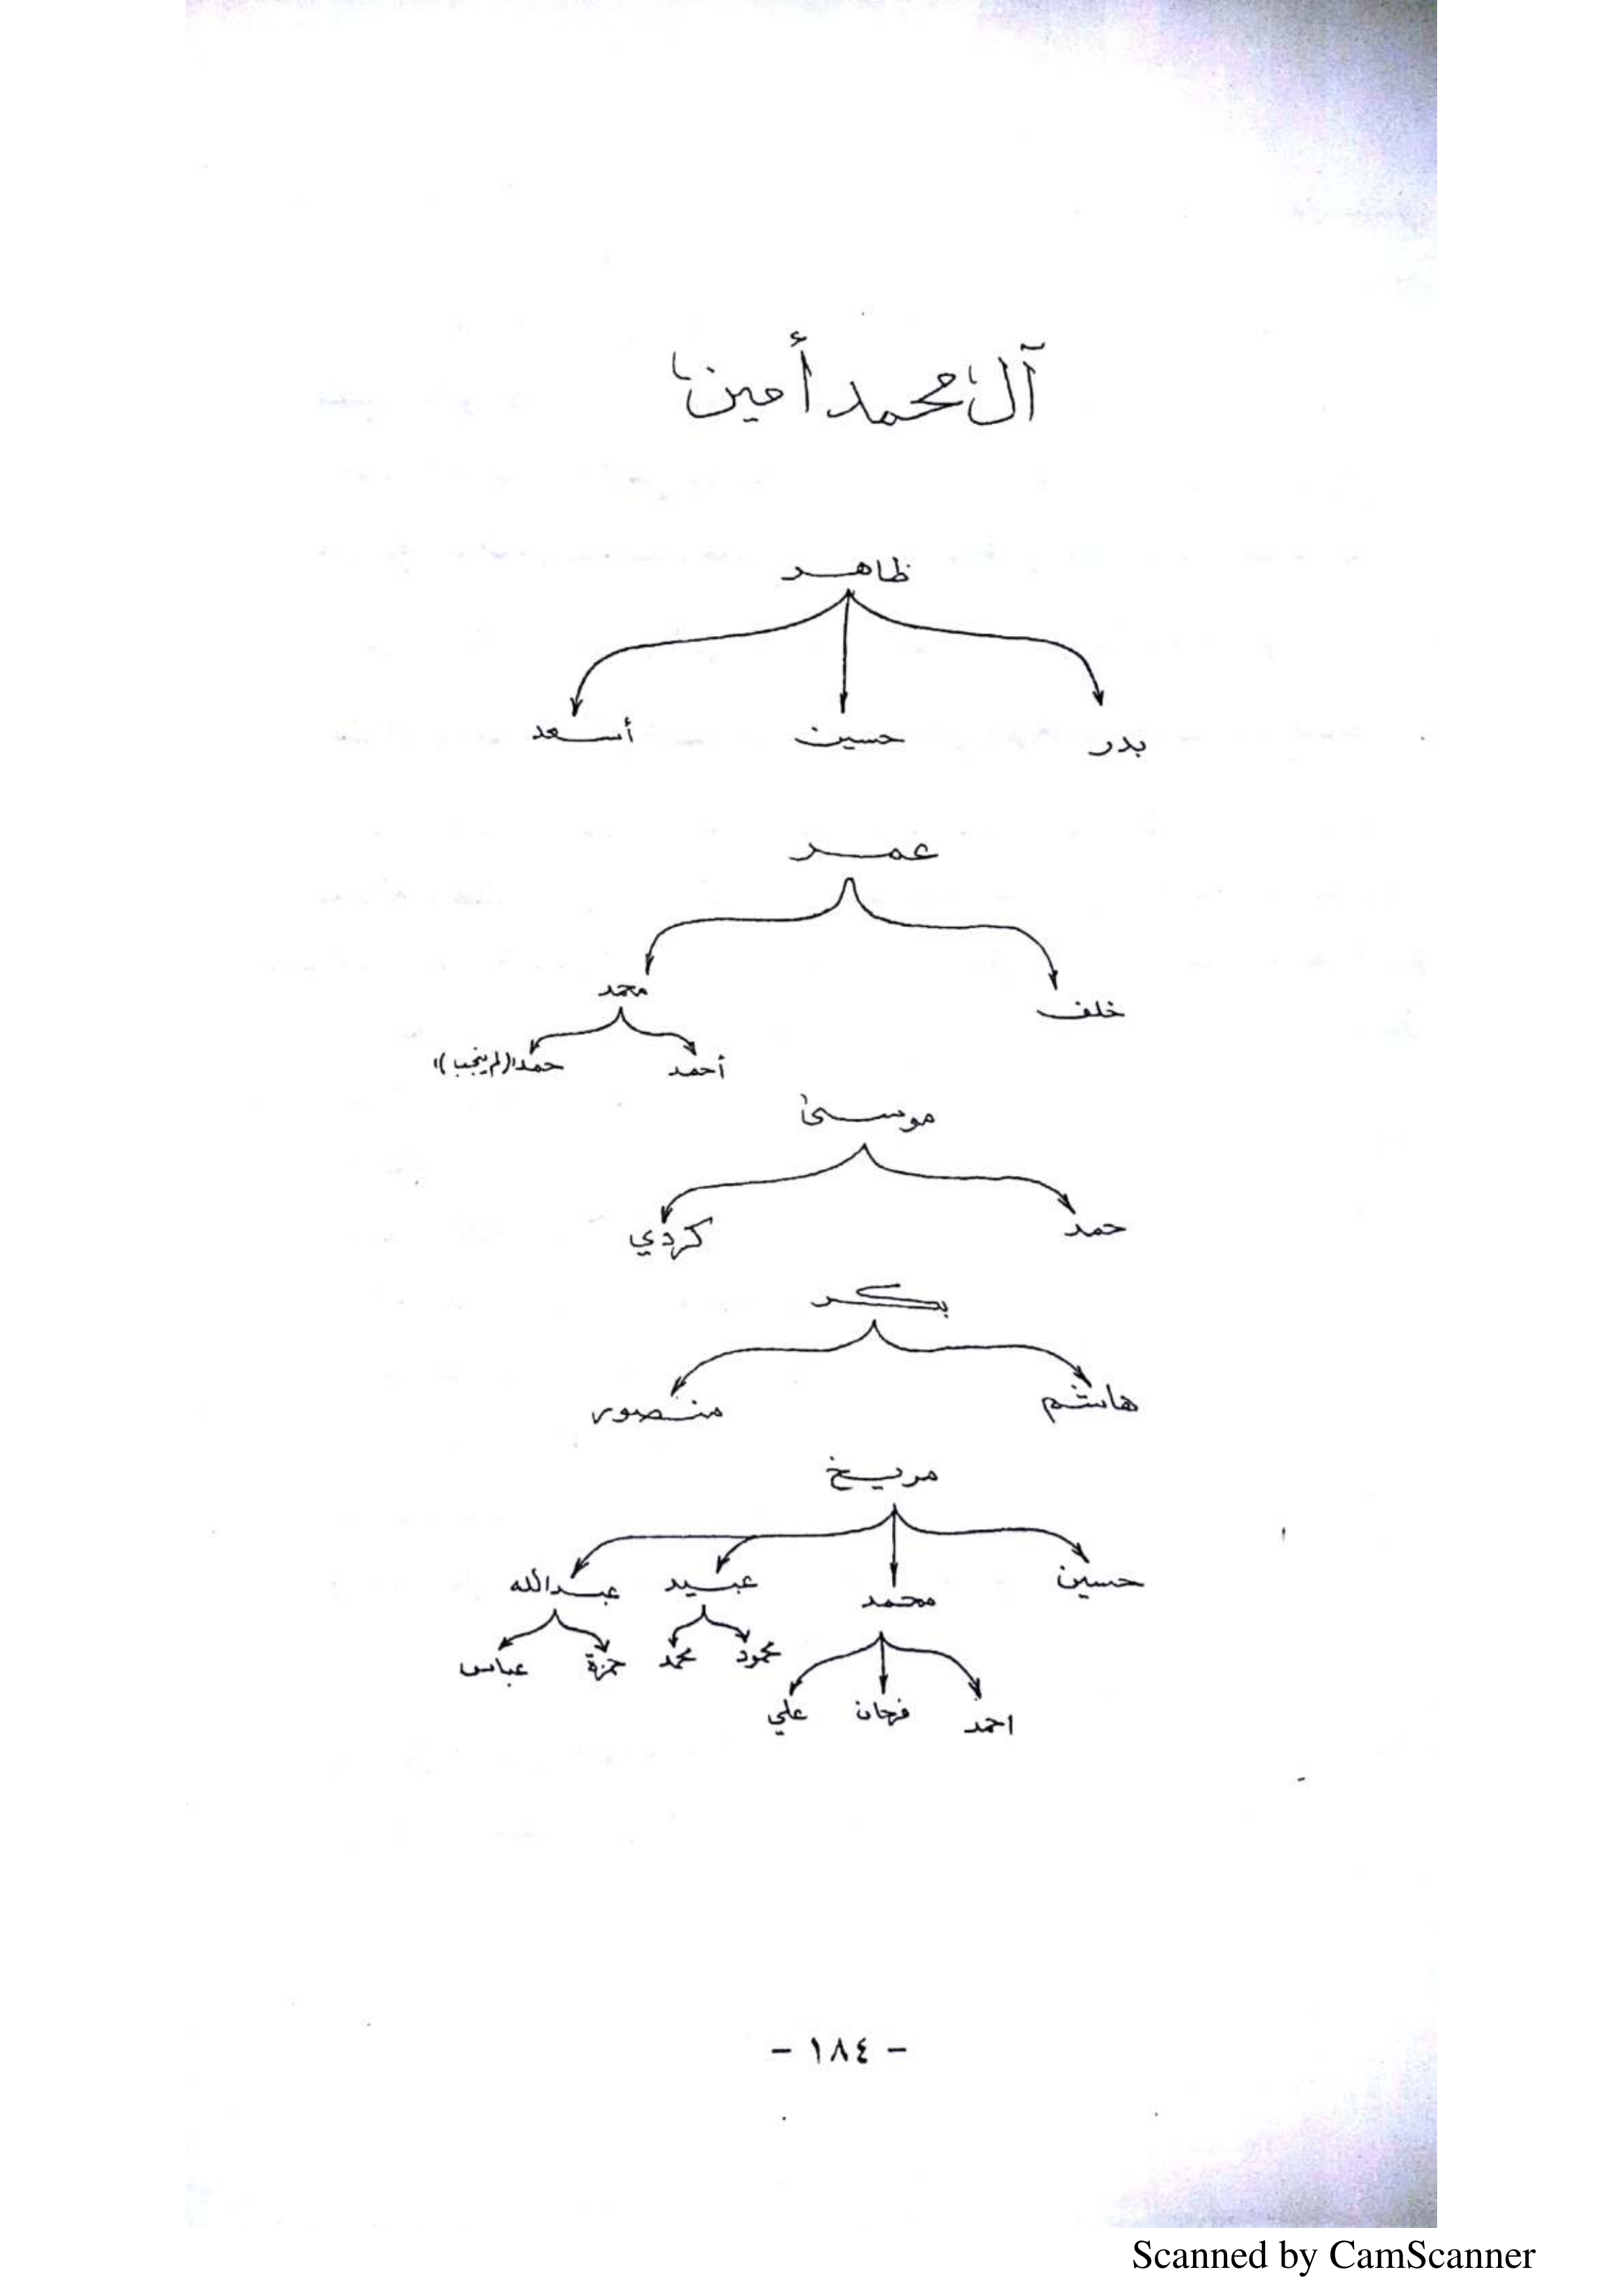 آل "محمد أمين"
ظاهر
بدر حسين أسعد
عمر
خلف محمد
أحمد حمد "(لم ينجب)"
موسى
حمد كردي
بكر
هاشم منصور
مريخ
حسين محمد عبيد عبدالله
محمود محمد حمزة عباس
احمد فرحان علي
- ١٨٤ -
Scanned by CamScanner